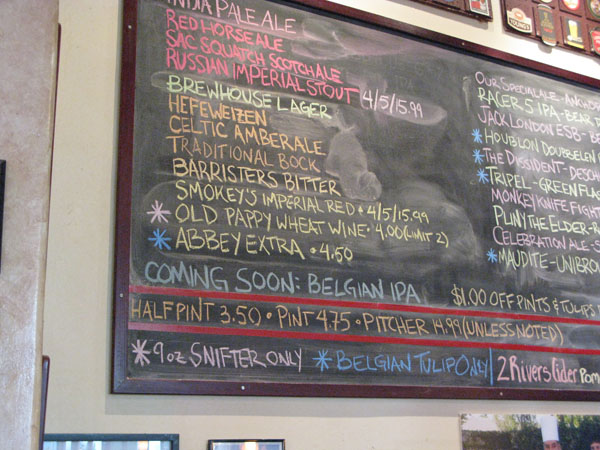 INDIA PALE ALE
RED HORSE ALE
SAC SQUATCH SCOTCH ALE
RUSSIAN IMPERIAL STOUT 4/5/15.99
BREWHOUSE LAGER
HEFEWEIZEN
CELTIC AMBER ALE
TRADITIONAL BOCK
BARRISTERS BITTER
SMOKEY'S IMPERIAL RED • 4/5/15.99
* OLD PAPPY WHEAT WINE • 4.00 (LIMIT 2)
* ABBEY EXTRA • 4.50
COMING SOON: BELGIAN IPA
HALF PINT 3.50 • PINT 4.75 • PITCHER 14.99 (UNLESS NOTED)
* 9 OZ SNIFTER ONLY * BELGIAN TULIP ONLY
OUR SPECIAL ALE -
RACER 5 IPA - BEAR
JACK LONDON ESB -
* HOUBLON DOUBBELEN
* THE DISSIDENT - DESCH
* TRIPEL - GREEN FLAS
MONKEY KNIFE FIGHT
PLINY THE ELDER -
CELEBRATION ALE -
* MAUDITE - UNIBROU
$1.00 OFF PINTS & TULIPS
2 Rivers Cider Pom